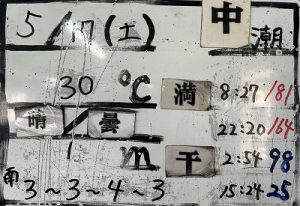 5/17(土) 中潮
30℃ 満 8:27/181
晴/曇 22:20/164
1m 干 2:54 98
南3~3~4~3 15:24 25